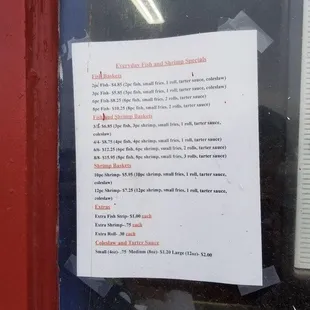 Everyday Fish and Shrimp Specials
Fish Baskets
2pc Fish- $4.85 (2pc fish, small fries, 1 roll, tarter sauce, coleslaw)
3pc Fish- $5.85 (3pc fish, small fries, 1 roll, tarter sauce, coleslaw)
6pc Fish- $8.25 (6pc fish, small fries, 2 rolls, tarter sauce)
8pc Fish- $10.25 (8pc fish, small fries, 2 rolls, tarter sauce)
Fish and Shrimp Baskets
3/3- $6.85 (3pc fish, 3pc shrimp, small fries, 1 roll, tarter sauce,
coleslaw)
4/4- $8.75 (4pc fish, 4pc shrimp, small fries, 1 roll, tarter sauce)
6/6- $12.25 (6pc fish, 6pc shrimp, small fries, 2 rolls, tarter sauce)
8/8- $15.95 (8pc fish, 8pc shrimp, small fries, 2 rolls, tarter sauce)
Shrimp Baskets
10pc Shrimp- $5.95 (10pc shrimp, small fries, 1 roll, tarter sauce,
coleslaw)
12pc Shrimp- $7.25 (12pc shrimp, small fries, 1 roll, tarter sauce,
coleslaw)
Extras
Extra Fish Strip- $1.00 each
Extra Shrimp- .75 each
Extra Roll- .30 each
Coleslaw and Tarter Sauce
Small (4oz)- .75 Medium (8oz)- $1.20 Large (12oz)- $2.00